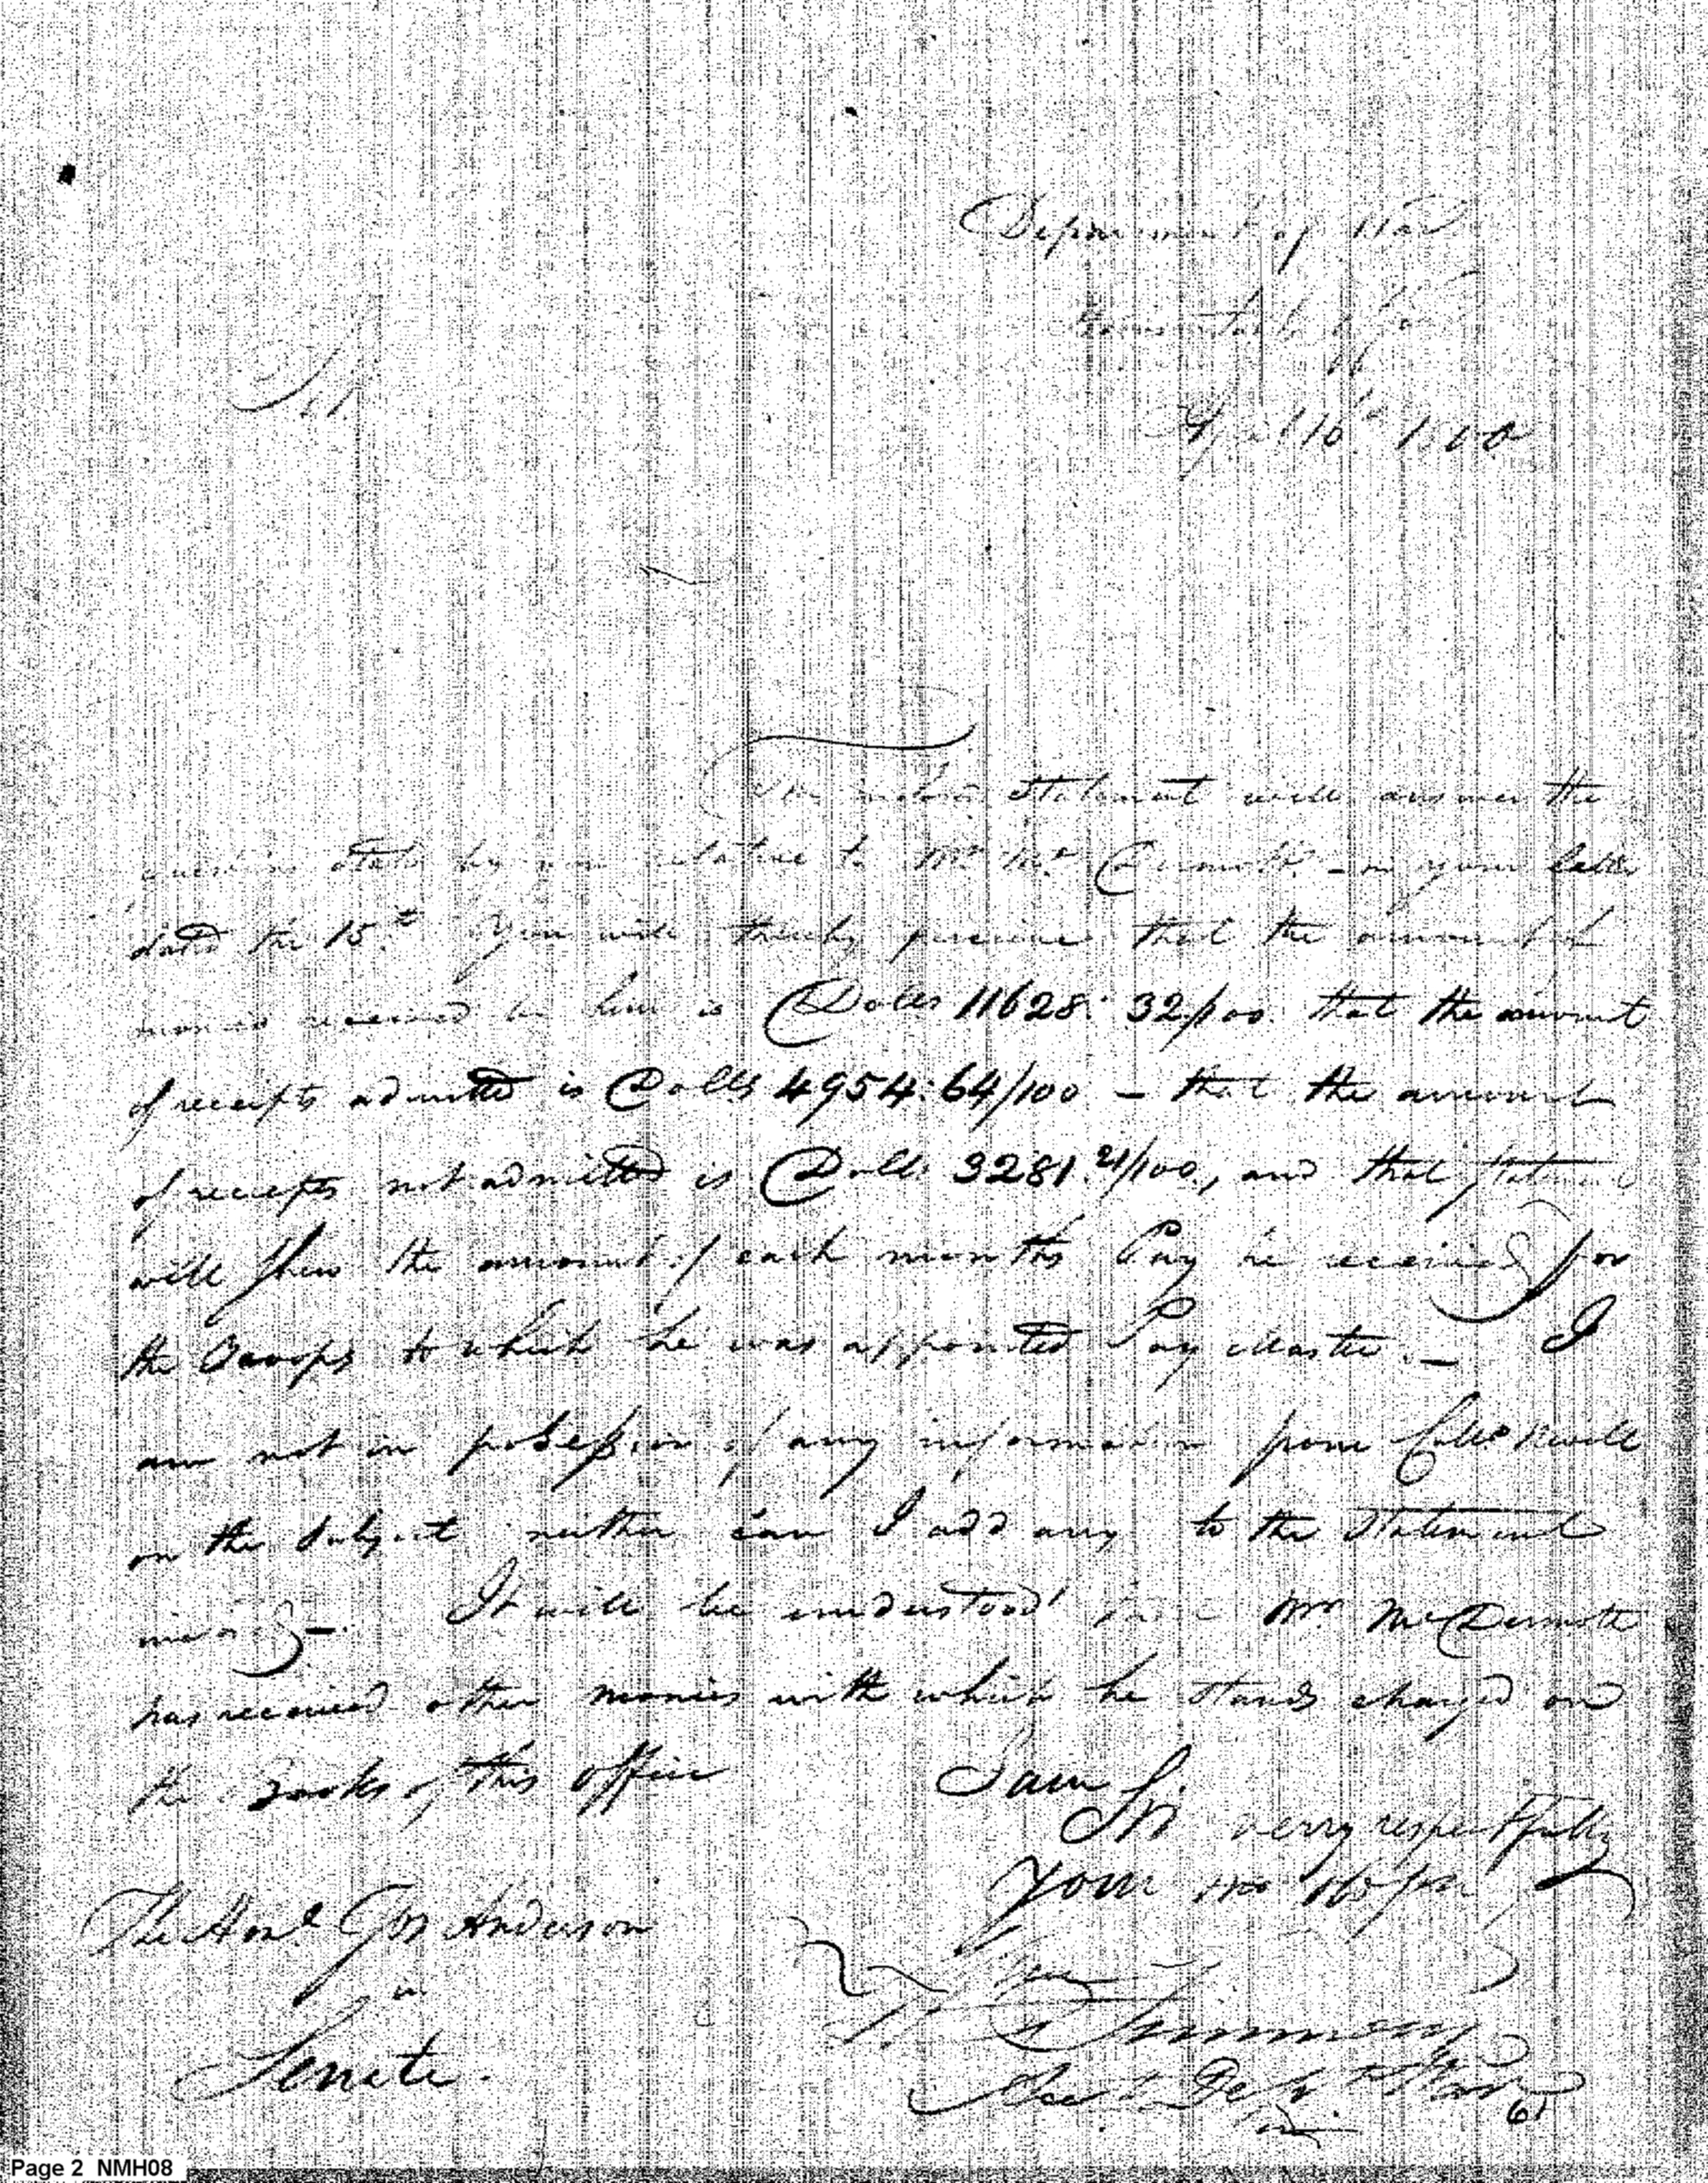 Department of War
Accountants Office
April 16th 1800
Sir
The inclosed Statement will answer the
questions stated by you relative to Mr. Mc. Dermott - in your letter
dated the 15th. You will thereby perceive that the amount of
monies received by him is Dolls 11628: 32/100 that the amount
of receipts admitted is Dolls 4954: 64/100 - that the amount
of receipts not admitted is Dolls 3281. 21/100, and that statement
will shew the amount of each months Pay he received for
the Troops to which he was appointed Pay Master. - I
am not in possession of any information from
on the Subject neither can I add any to the Statement
It will be understood Mr. McDermott
has received other monies with which he stands charged on
the Books of this office
I am Sir
very respectfully
Your
The Honl. Jos Anderson
in
Senate.
Wm Simmons
Acct. Dept. War
61
Page 2 NMH08